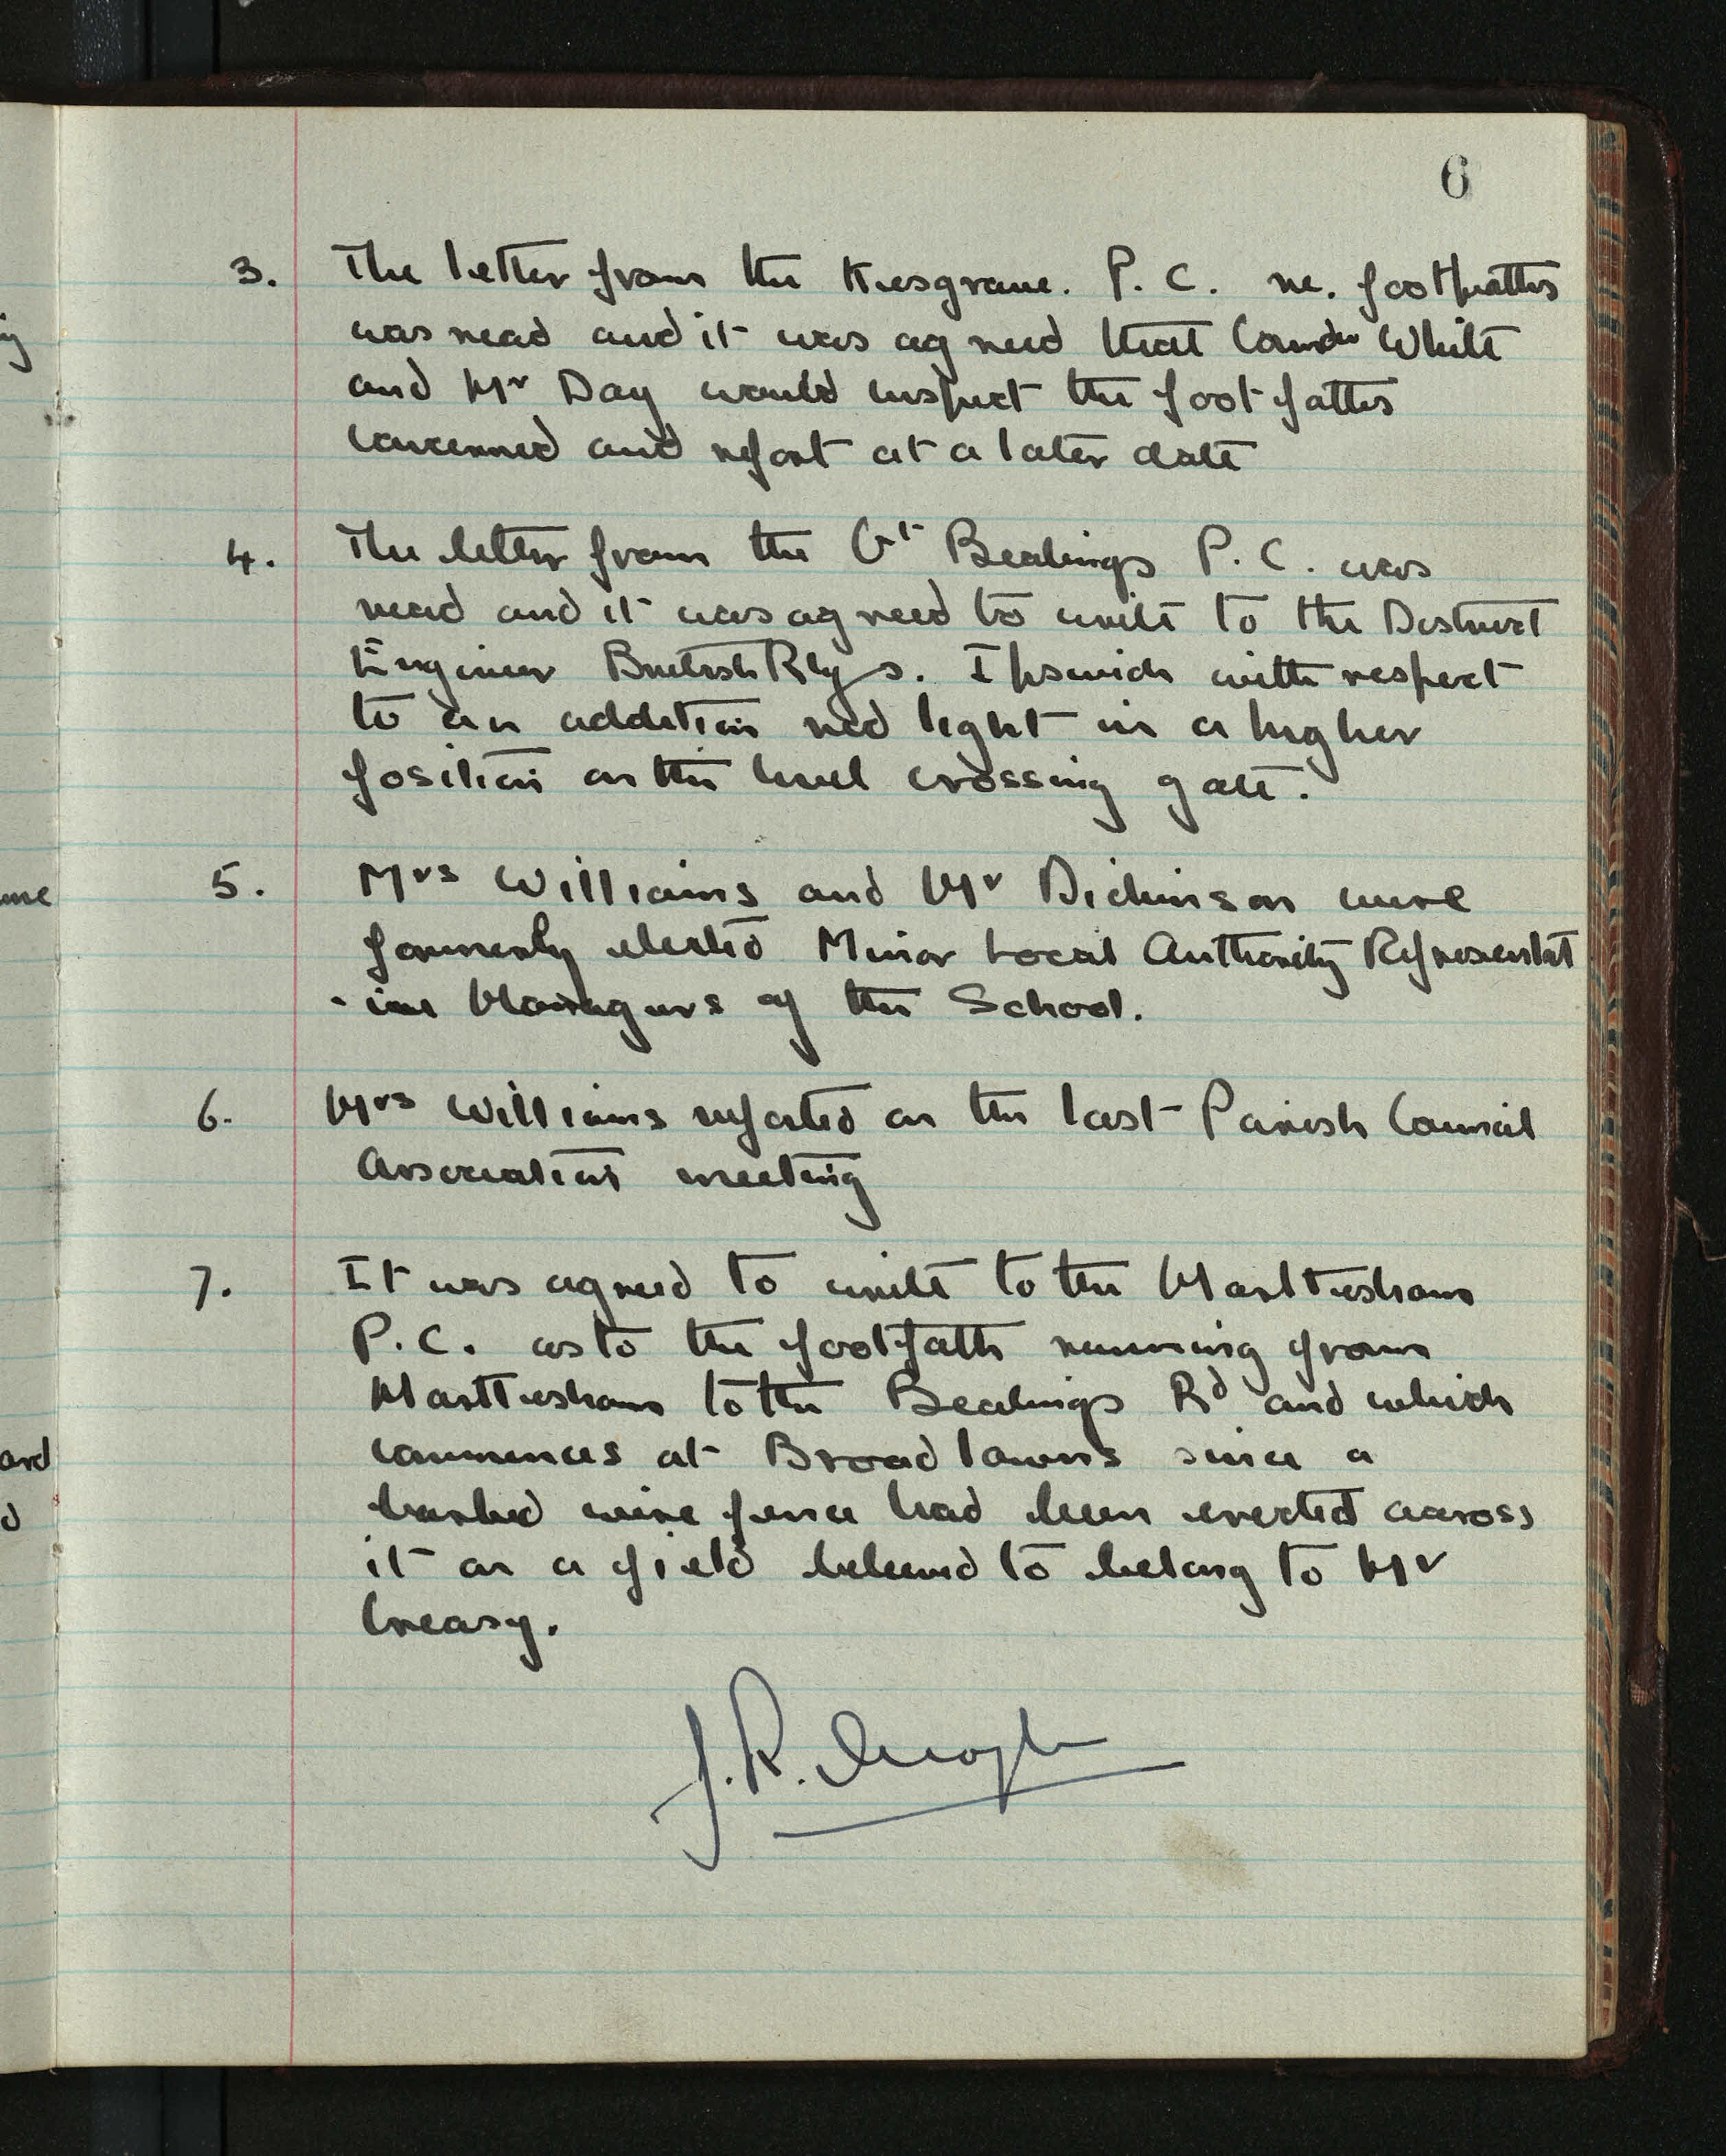 6
3. The letter from the Kesgrave. P. C. re. footpaths
was read and it was agreed that Comdr White
and Mr Day would inspect the footpaths
concerned and report at a later date
4. The letter from the Gt Bealings P. C. was
read and it was agreed to write to the District
Engineer British Rlys. Ipswich with respect
to an addition red light in a higher
position on the level crossing gate.
5. Mrs Williams and Mr Dickinson were
formerly elected Minor Local Authority Representat
-ive Managers of the School.
6. Mrs Williams reported on the last Parish Council
Association meeting
7. It was agreed to write to the Martlesham
P.C. as to the footpath running from
Martlesham to the Bealings Rd and which
commences at Broadlawns since a
barbed wire fence had been erected across
it on a field believed to belong to Mr
Creasy.
J. R.